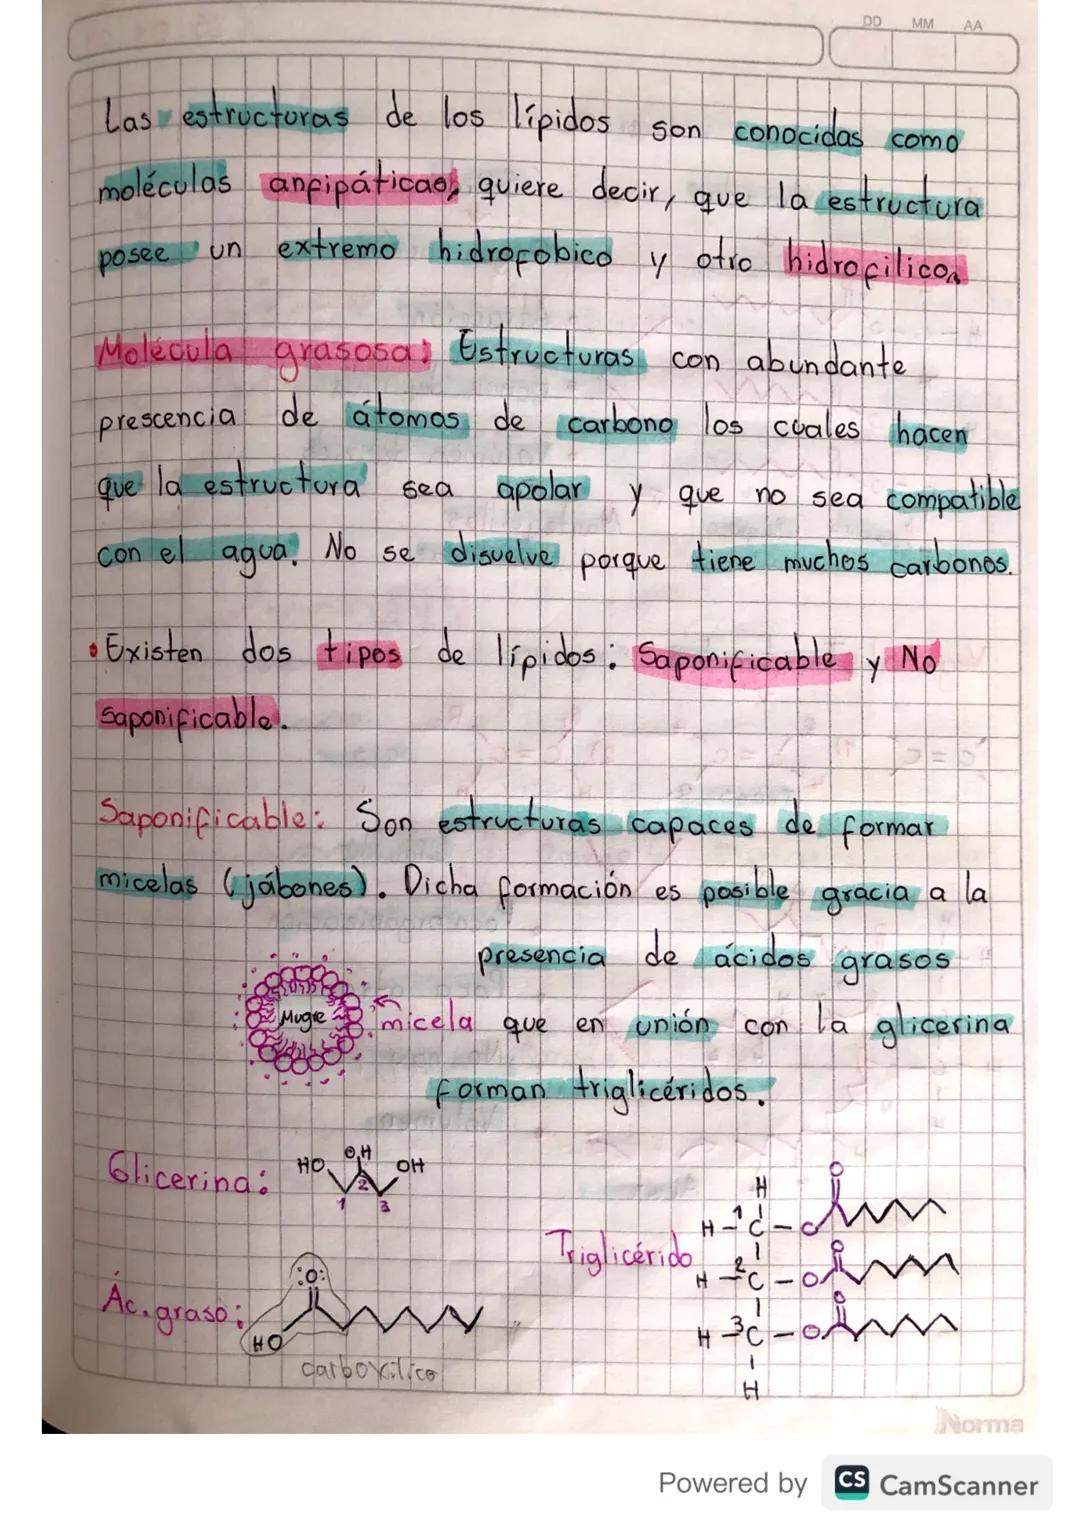 DD MM AA
Las estructuras de los lípidos son conocidas como
moléculas anfipáticas, quiere decir, que la estructura
posee un extremo hidrofóbico y otro hidrofilico.
Molécula grasosa: Estructuras con abundante
prescencia de átomos de carbono los cuales hacen
que la estructura sea apolar y que no sea compatible
con el agua. No se disuelve porque tiene muchos carbonos.
• Existen dos tipos de lípidos: Saponificable y No
saponificable.
Saponificable: Son estructuras capaces de formar
micelas (jábones). Dicha formación es posible gracia a la
presencia de ácidos grasos
Mugre micela que en unión con la glicerina
forman triglicéridos.
Glicerina: HO OH OH
1 2 3
Triglicérido
H
H - 1 C - O O
H - 2 C - O O
H - 3 C - O O
H
Ác. graso: :O:
HO
carboxilico
Norma
Powered by CS CamScanner